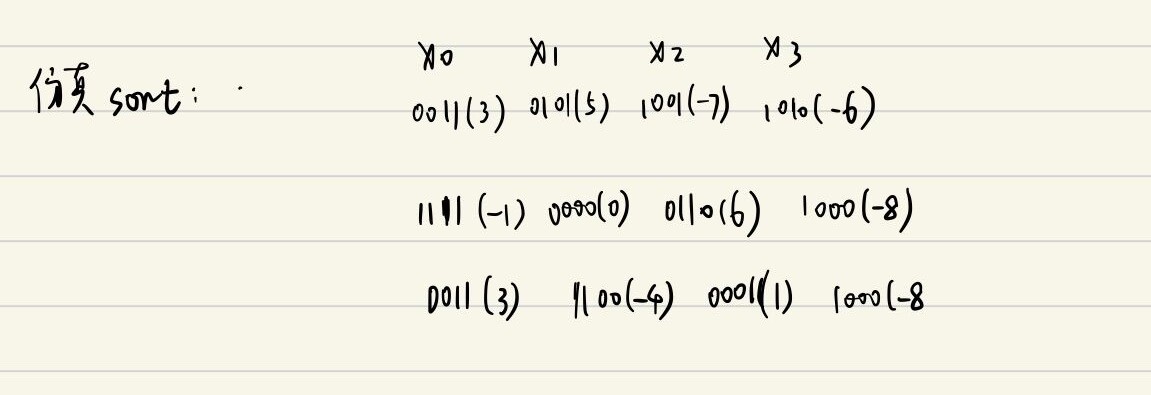 x0 x1 x2 x3
仿真 sort: 0011(3) 0101(5) 1001(-7) 1010(-6)
1111(-1) 0000(0) 0110(6) 1000(-8)
0011(3) 1100(-4) 0001(1) 1000(-8